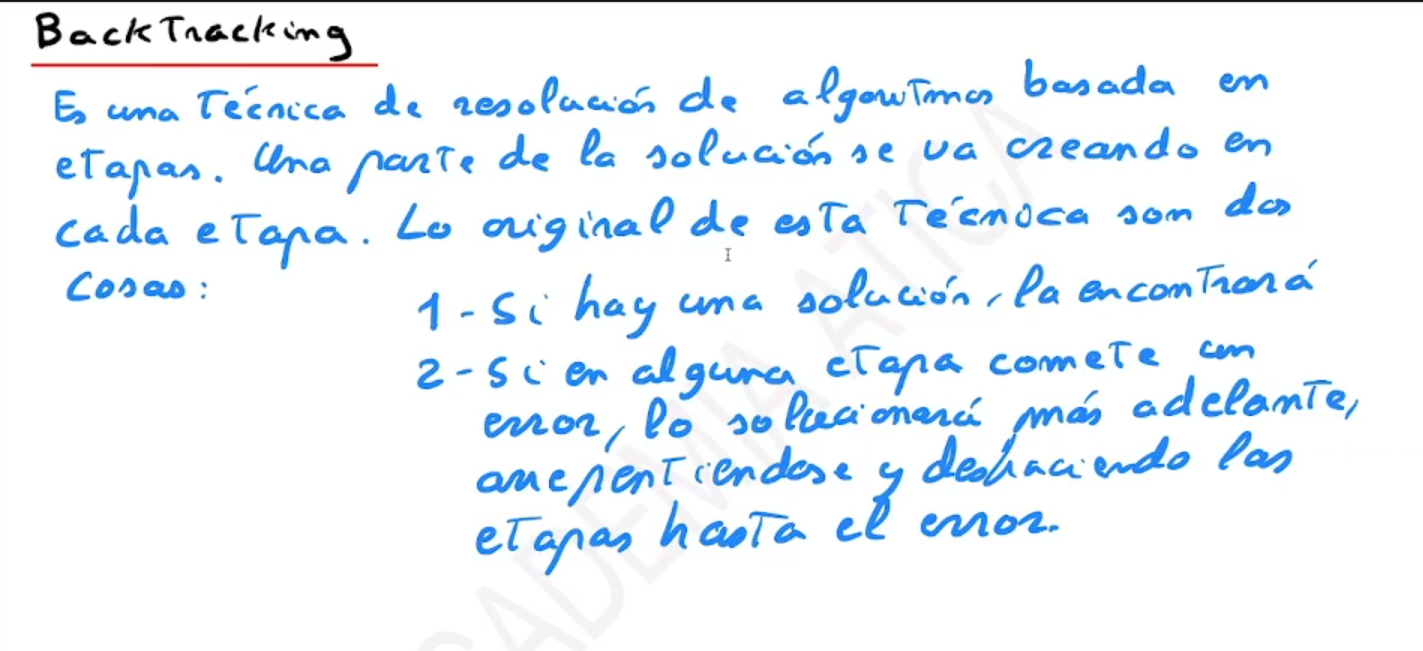 BackTracking
Es una Técnica de resolución de algoritmos basada en
etapas. Una parte de la solución se va creando en
cada etapa. Lo original de esta Técnica son dos
cosas:
1 - Si hay una solución, la encontrará
2 - Si en alguna etapa comete un
error, lo solucionará más adelante,
arrepentiendose y deshaciendo las
etapas hasta el error.
ACADEMIA ATICA